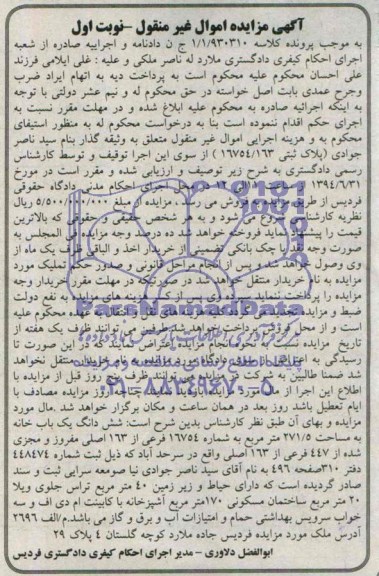 آگهی مزایده اموال غیر منقول -نوبت اول
به موجب پرونده کلاسه 1/1/930310 ج ن دادنامه و اجراییه صادره از شعبه
اجرای احکام کیفری دادگستری ملارد له ناصر ملکی و علیه : علی ایلامی فرزند
علی احسان محکوم علیه محکوم است به پرداخت دیه به اتهام ایراد ضرب
وجرح عمدی بابت اصل خواسته در حق محکوم له و نیم عشر دولتی با توجه
به اینکه اجرائیه صادره به محکوم علیه ابلاغ شده و در مهلت مقرر نسبت به
اجرای حکم اقدام ننموده است بنا به درخواست محکوم له به منظور استیفای
محکوم به و هزینه اجرایی اموال غیر منقول متعلق به وثیقه گذار بنام سید ناصر
جوادی (پلاک ثبتی 16754/163 ) از سوی این اجرا توقیف و توسط کارشناس
رسمی دادگستری به شرح زیر توصیف و ارزیابی شده و مقرر است در مورخ
1394/6/31 محل اجرای احکام مدنی دادگاه حقوقی
فردیس از طریق مزایده به فروش می رسد ، مزایده از مبلغ 5/500/000/000 ریال
نظریه کارشناس شروع می شود و به هر شخص حقیقی و حقوقی که بالاترین
قیمت را پیشنهاد نماید فروخته خواهد شد ده درصد وجه مزایده فی المجلس به
صورت وجه نقد یا چک بانکی تضمینی از خریدار اخذ و الباقی ظرف یک ماه از
وی وصول خواهد شد و پس از انجام مراحل قانونی و صدور حکم تملیک مورد
مزایده به نام خریدار منتقل خواهد شد در صورتیکه در مهلت مقرر خریدار وجه
مزایده را پرداخت ننماید سپرده وی پس از کسر هزینه های مزایده به نفع دولت
ضبط و مزایده تجدید می گردد محکوم علیه
است و از محل فروش پرداخت خواهد شد طرفین می توانند ظرف یک هفته از
تاریخ مزایده نسبت به انجام مزایده اعتراض نمایند که در این صورت تا
رسیدگی به اعتراض از سوی دادگاه مورد مزایده به نام خریدار منتقل نخواهد
شد ضمنا طالبین به شرکت در مزایده می توانند ظرف پنج روز قبل از مزایده با
اطلاع این اجرا از مال مورد مزایده بازدید نمایند چنانچه روز مزایده مصادف با
ایام تعطیل باشد روز بعد در همان ساعت و مکان برگزار خواهد شد .مال مورد
مزایده و بهای آن طبق نظر کارشناس بدین شرح است: شش دانگ یک باب خانه
به مساحت 271/5 متر مربع به شماره 16754 فرعی از 163 اصلی مفروز و مجزی
شده از 447 فرعی از 163 اصلی واقع در سرحد آباد که ذیل ثبت شماره 448474
دفتر 310صفحه 496 به نام آقای سید ناصر جوادی نیا صومعه سرایی ثبت و سند
صادر گردیده است که دارای حیاط و زیر زمین 40 متر مربع تراس جلوی ویلا
20 متر مربع ساختمان مسکونی 170متر مربع آشپزخانه با کابینت ام دی اف و سه
خواب سرویس بهداشتی حمام و امتیازات آب و برق و گاز می باشد.م/الف 2696
آدرس ملک مورد مزایده فردیس جاده ملارد کوچه گلستان 4 پلاک 29
ابوالفضل دلاوری – مدیر اجرای احکام کیفری دادگستری فردیس
ParsNamadData
پایگاه اطلاع رسانی مناقصه و مزایده
021-88349670-5